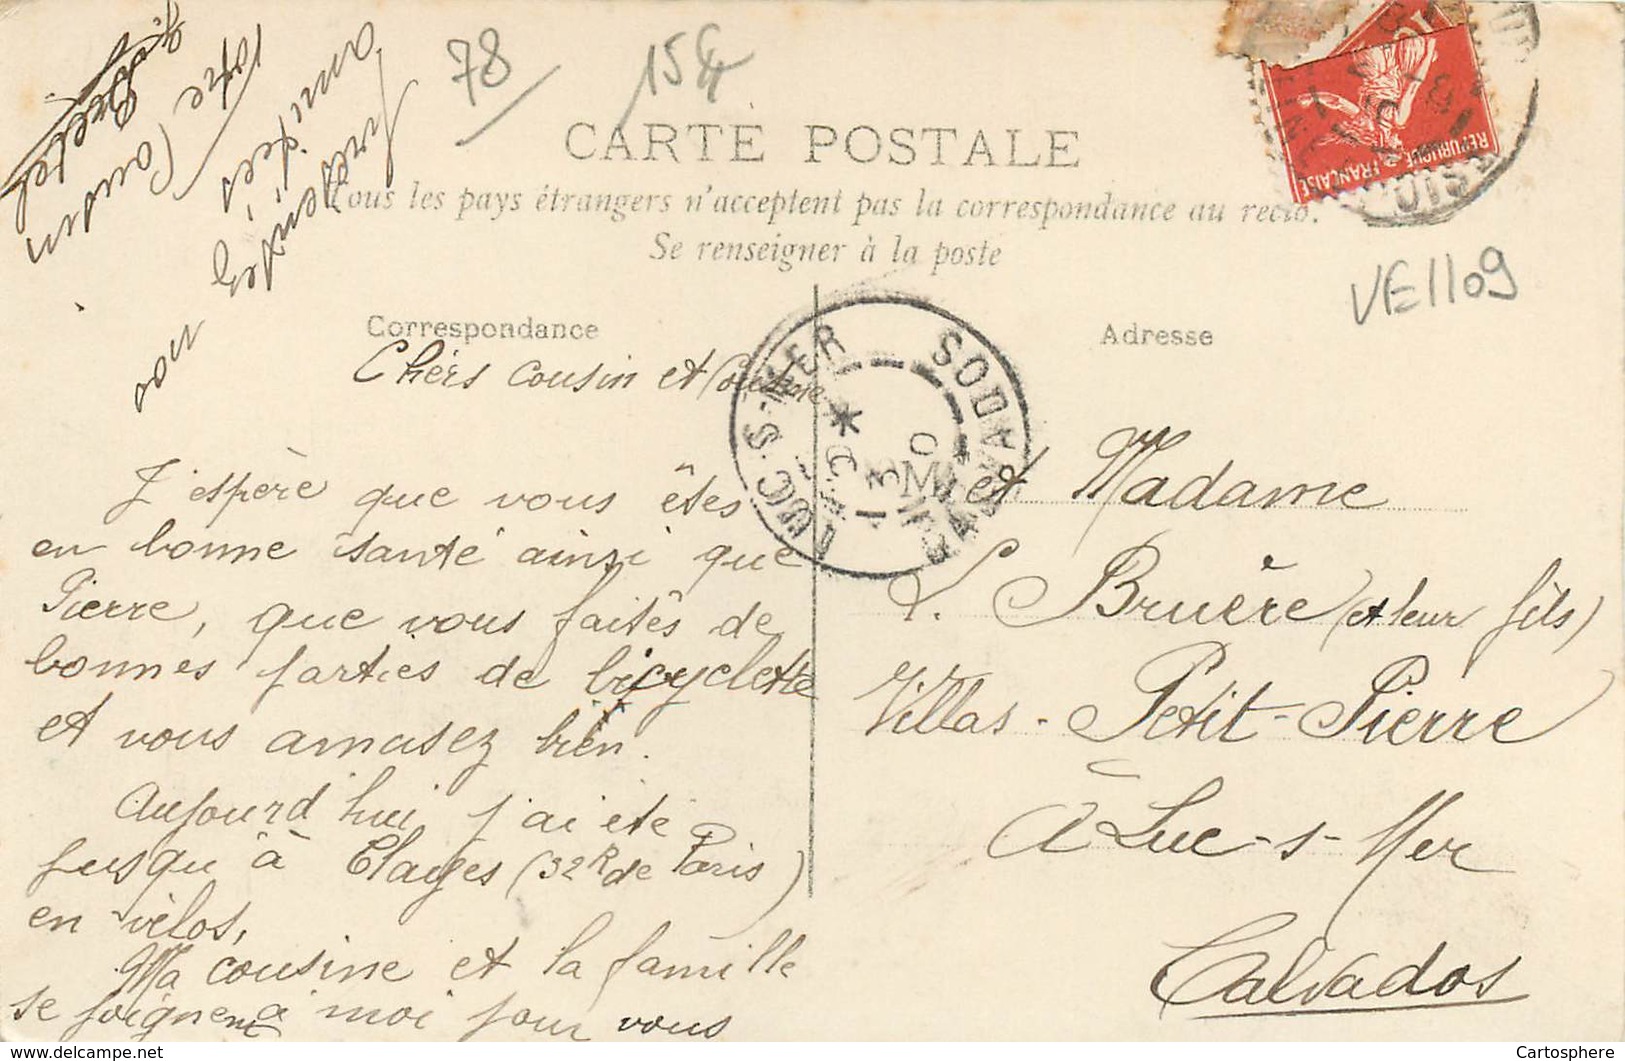 78
15€
CARTE POSTALE
Tous les pays étrangers n'acceptent pas la correspondance au recto.
Se renseigner à la poste
VE1109
REPUBLIQUE FRANÇAISE
Correspondance
Adresse
Chèrs cousin et Cousine
J'espère que vous êtes
en bonne santé ainsi que
Pierre, que vous faitês de
bonnes parties de bicyclette
et vous amusez bien.
Aujourd'hui j'ai été
jusqu'à Clayes (32 K de Paris)
en vélos,
Ma cousine et la famille
se joignent à moi pour vous
vous
présentées
amitiés
Votre Cousin
LUC-S-MER
CALVADOS
M et Madame
L. Bruère (et leur fils)
Villas - Petit-Pierre
à Luc-s-Mer
Calvados
Cartosphere